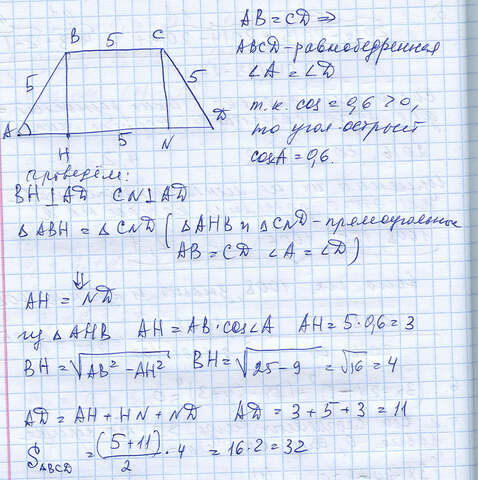 B 5 C
5 5
A H 5 N D
AB = CD ⇒
ABCD - равнобедренная
∠A = ∠D
т.к. cos = 0,6 > 0,
то угол острый
cosA = 0,6.
проведём:
BH ⊥ AD CN ⊥ AD
△ ABH = △ CND ( △ AHB и △ CND - прямоугольные
AB = CD ∠A = ∠D )
⇓
AH = ND
из △ AHB AH = AB · cos∠A AH = 5 · 0,6 = 3
BH = √(AB² - AH²) BH = √(25 - 9) = √16 = 4
AD = AH + HN + ND AD = 3 + 5 + 3 = 11
S_ABCD = (5 + 11)/2 · 4 = 16 · 2 = 32